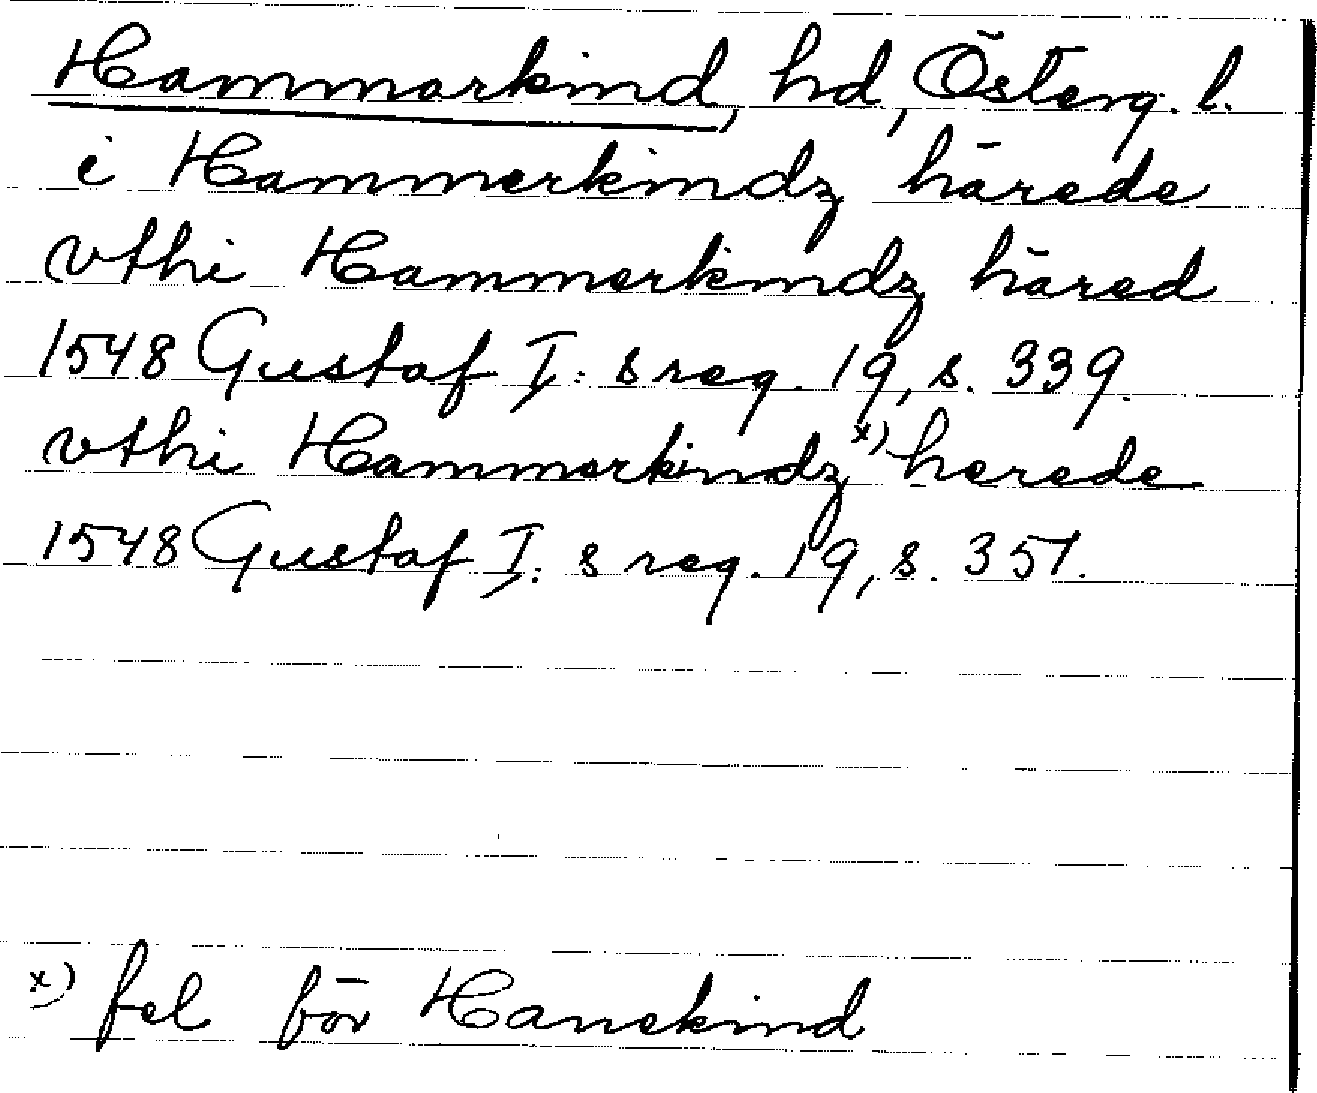 Hammarkind, hd, Österg. l.
i Hammerkindz härede
vthi Hammerkindz häred
1548 Gustaf I:s reg. 19, s. 339.
vthi Hammerkindz x) herede
1548 Gustaf I:s reg. 19, s. 351.
x) fel för Hanekind